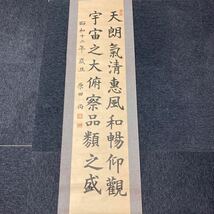 天朗氣清惠風和暢仰觀
宇宙之大俯察品類之盛
昭和十六年 歲旦 原田